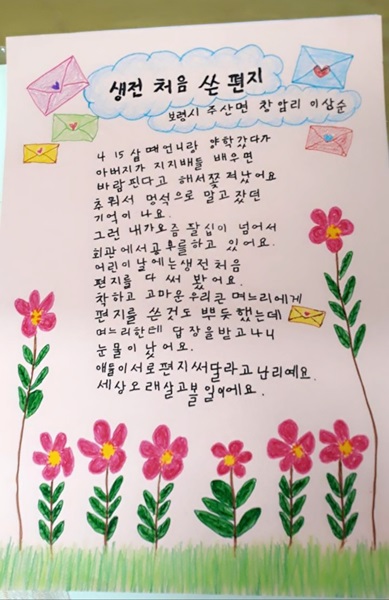 생전 처음 쓴 편지
보령시 주산면 창암리 이삼순
4 15살 때 언니랑 야학갔다가
아버지가 지지배들 배우면
바람핀다고 해서 쫓겨났어요
추워서 멍석으로 말고 갔던
기억이 나요.
그런 내가 요즘 팔십이 넘어서
회관에서 공부를 하고 있어요.
어린이 날에는 생전 처음
편지를 다 써 봤어요.
착하고 고마운 우리 큰 며느리에게
편지를 쓴 것도 뿌듯했는데
며느리한테 답장을 받고나니
눈물이 났어요.
애들이 서로 편지 써달라고 난리예요.
세상 오래 살고 볼 일이에요.